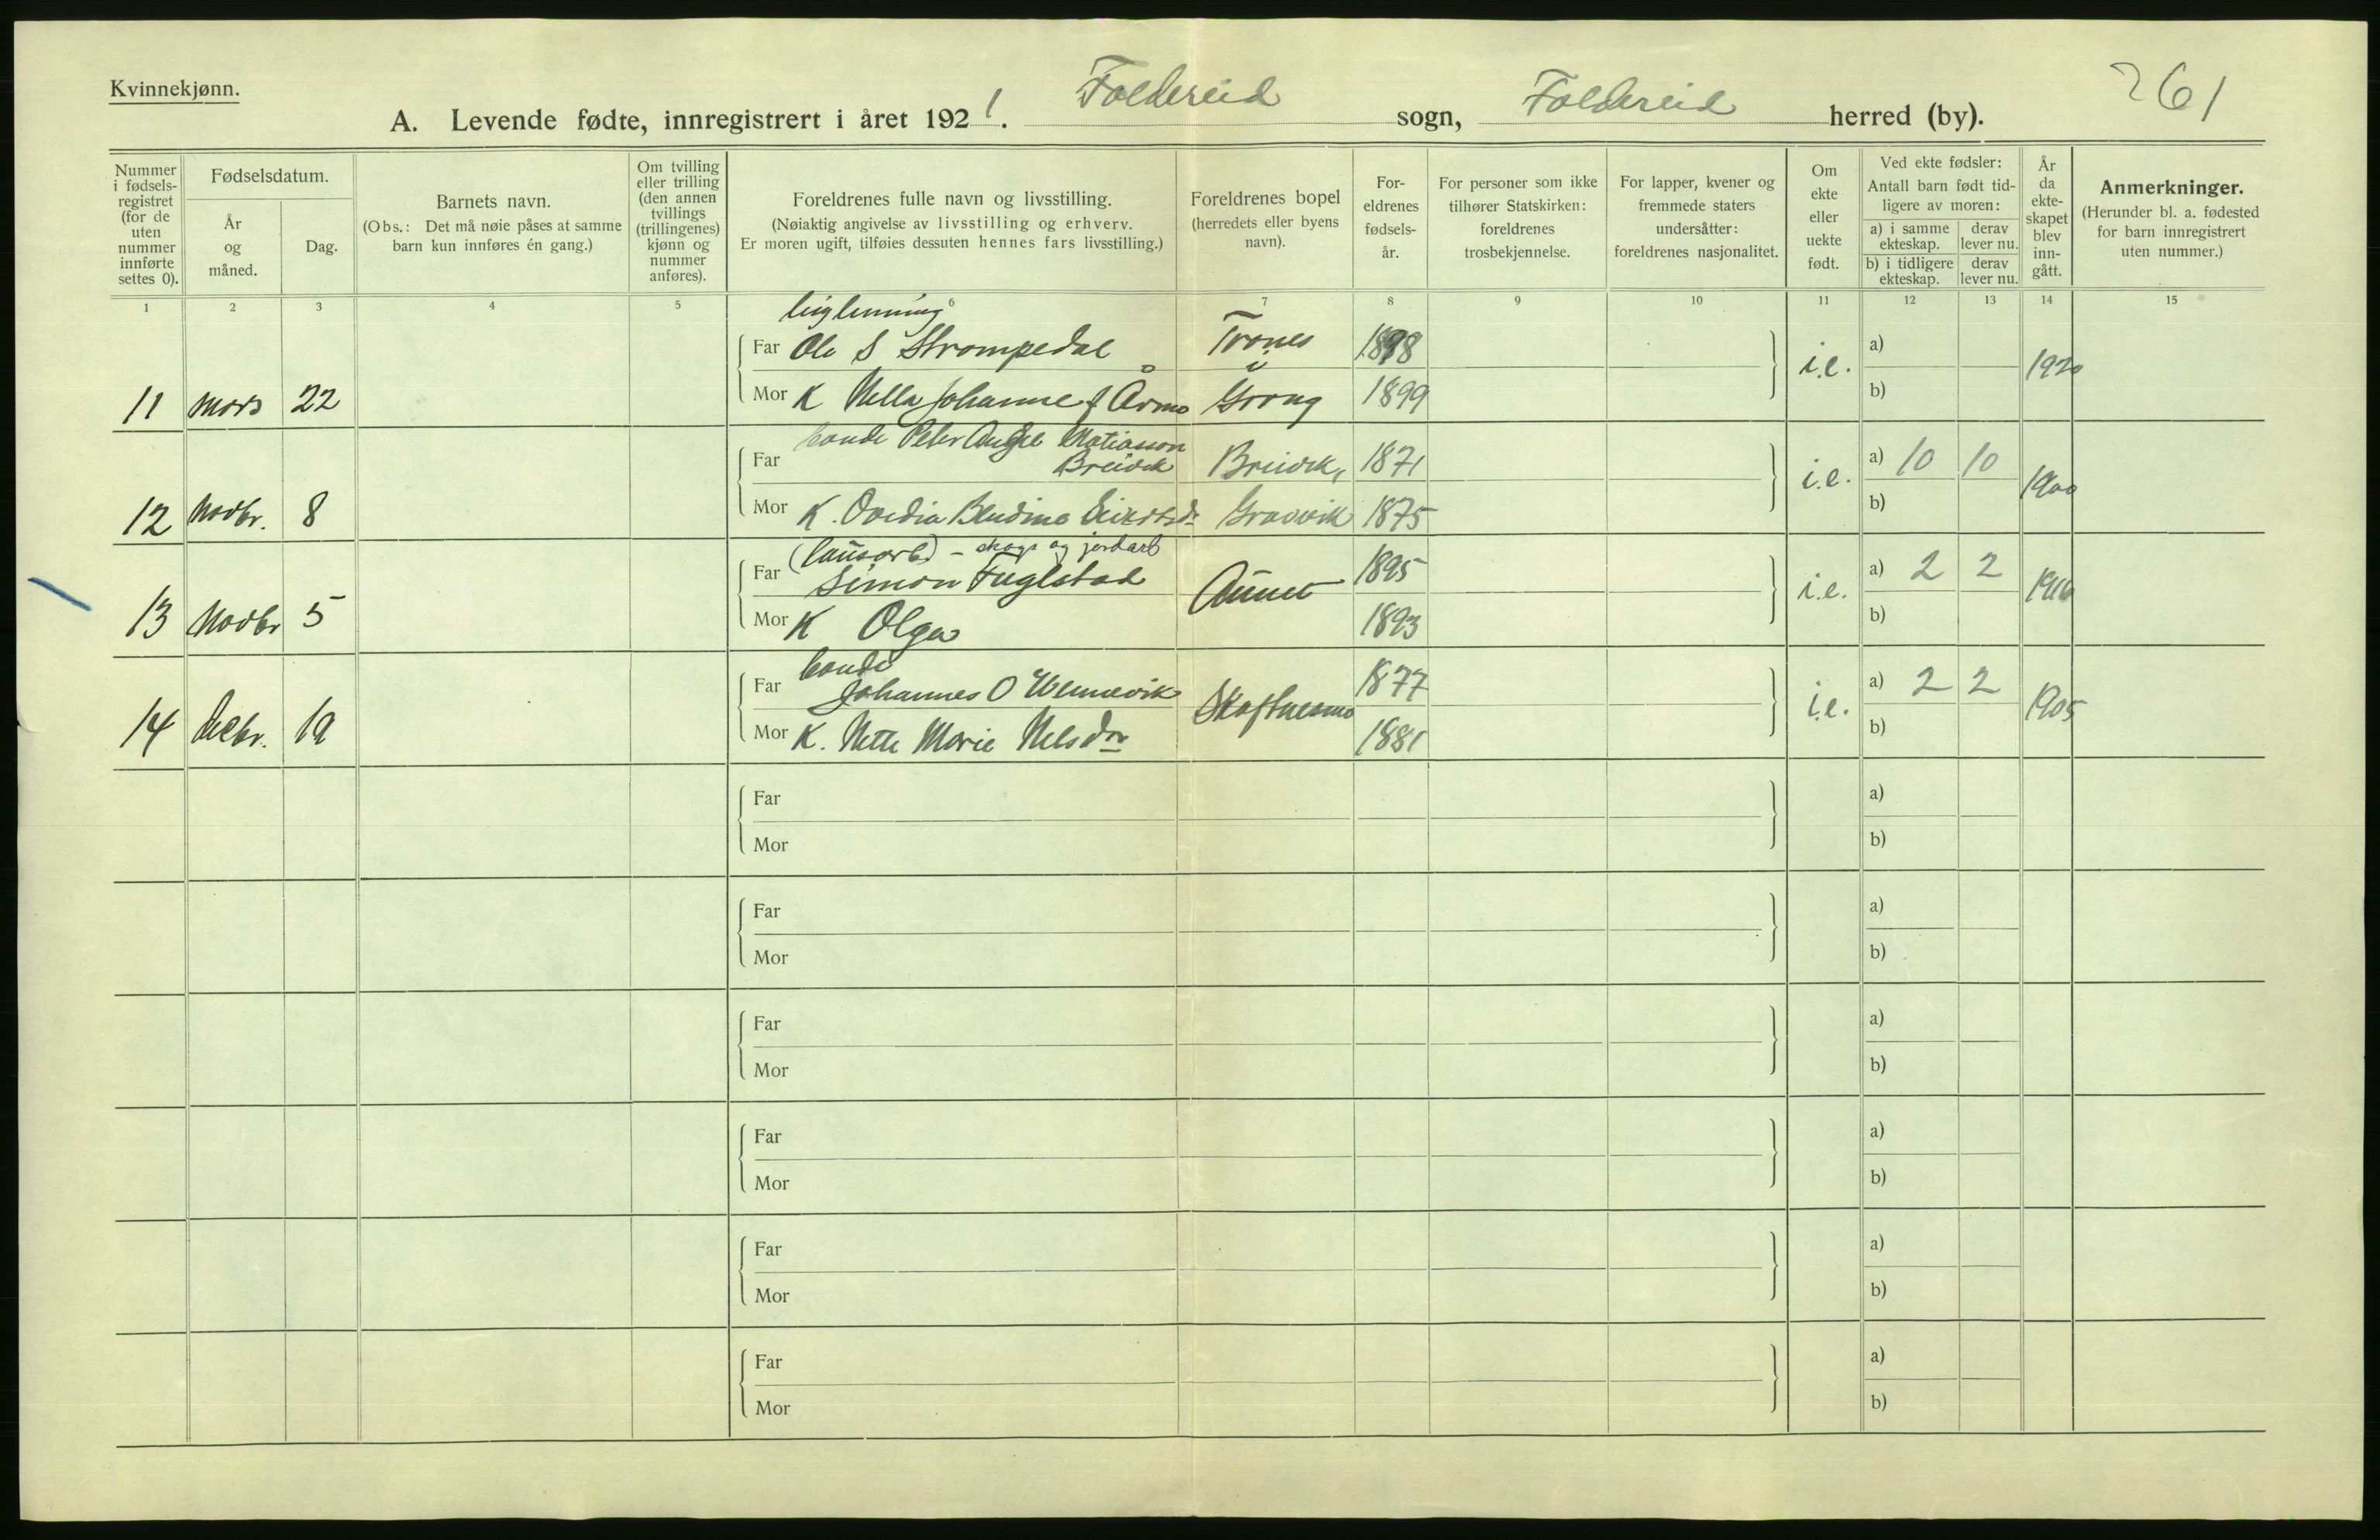 Kvinnekjønn.
261
A. Levende fødte, innregistrert i året 1921. Foldereid sogn, Foldereid herred (by).
Nummer i fødsels-registret (for de uten nummer innførte settes 0).
Fødselsdatum.
År og måned.
Dag.
Barnets navn.
(Obs.: Det må nøie påses at samme barn kun innføres én gang.)
Om tvilling eller trilling (den annen tvillings (trillingenes) kjønn og nummer anføres).
Foreldrenes fulle navn og livsstilling.
(Nøiaktig angivelse av livsstilling og erhverv.
Er moren ugift, tilføies dessuten hennes fars livsstilling.)
Foreldrenes bopel
(herredets eller byens navn).
For-eldrenes fødsels-år.
For personer som ikke tilhører Statskirken: foreldrenes trosbekjennelse.
For lapper, kvener og fremmede staters undersåtter: foreldrenes nasjonalitet.
Om ekte eller uekte født.
Ved ekte fødsler:
Antall barn født tid-ligere av moren:
a) i samme ekteskap.
derav lever nu.
b) i tidligere ekteskap.
derav lever nu.
År da ekte-skapet blev inn-gått.
Anmerkninger.
(Herunder bl. a. fødested for barn innregistrert uten nummer.)
1 2 3 4 5 6 7 8 9 10 11 12 13 14 15
Far Ole S Strompedal Trones 1898 a)
11 mars 22 i i.e. 1920
Mor K Nella Johanne f Årmo Grong 1899 b)
bonde Peter Angel Matiasson
Far Breivik Breivik, 1871 a) 10 10
12 Novbr. 8 i.e. 1900
Mor K. Ovedia Bendine Gravvik 1875 b)
(lausarb) - skogs og jordarb
Far Simon Fuglstad 1895 a) 2 2
13 Novbr 5 Aunet i.e. 1916
Mor K Olga 1893 b)
bonde
Far Johannes O 1877 a) 2 2
14 Decbr. 19 Skaftnesmo i.e. 1905
Mor K. Nette Marie Nelsdr 1881 b)
Far a)
Mor b)
Far a)
Mor b)
Far a)
Mor b)
Far a)
Mor b)
Far a)
Mor b)
Far a)
Mor b)